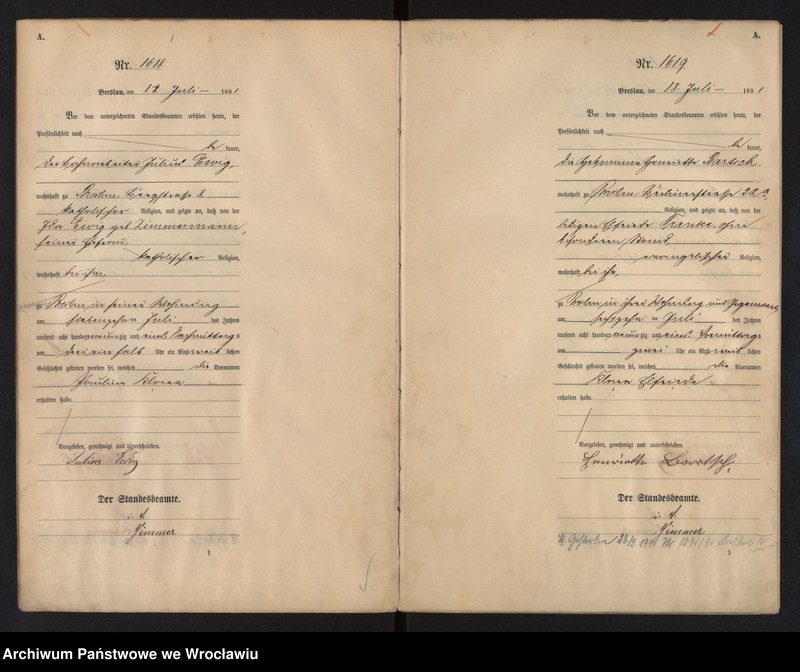 A.
Nr. 1618
Breslau, am 18 Juli 1891
Vor dem unterzeichneten Standesbeamten erschien heute, der
Persönlichkeit nach
be kannt,
der Julius Ewig,
wohnhaft zu Breslau, 8
katholischer Religion, und zeigte an, daß von der
Ida Ewig geb. Zimmermann,
seiner Ehefrau,
katholischer Religion,
wohnhaft bei ihm,
zu Breslau in seiner Wohnung
am siebenzehn ten Juli des Jahres
tausend acht hundert neunzig und eins Nachmittags
um drei ein halb Uhr ein Kind weib lichen
Geschlechts geboren worden sei, welches die Vornamen
Pauline Klara
erhalten habe.
Vorgelesen, genehmigt und unterschrieben.
Julius Ewig
Der Standesbeamte.
i. V.
Zimmer
1
A.
Nr. 1619
Breslau, am 18. Juli 1891
Vor dem unterzeichneten Standesbeamten erschien heute, der
Persönlichkeit nach
be kannt,
die Hebamme Henriette Bartsch
wohnhaft zu Breslau,
Religion, und zeigte an, daß von der
ledigen Elfriede Franke, ohne
besonderen Stand,
evangelischer Religion,
wohnhaft bei ihr,
zu Breslau in ihrer Wohnung und Gegenwart
am sechzehn ten Juli des Jahres
tausend acht hundert neunzig und eins Vormittags
um zwei Uhr ein Kind weib lichen
Geschlechts geboren worden sei, welches die Vornamen
Klara Elfriede
erhalten habe.
Vorgelesen, genehmigt und unterschrieben.
Henriette Bartsch.
Der Standesbeamte.
i. V.
Zimmer
Gestorben
1
Archiwum Państwowe we Wrocławiu